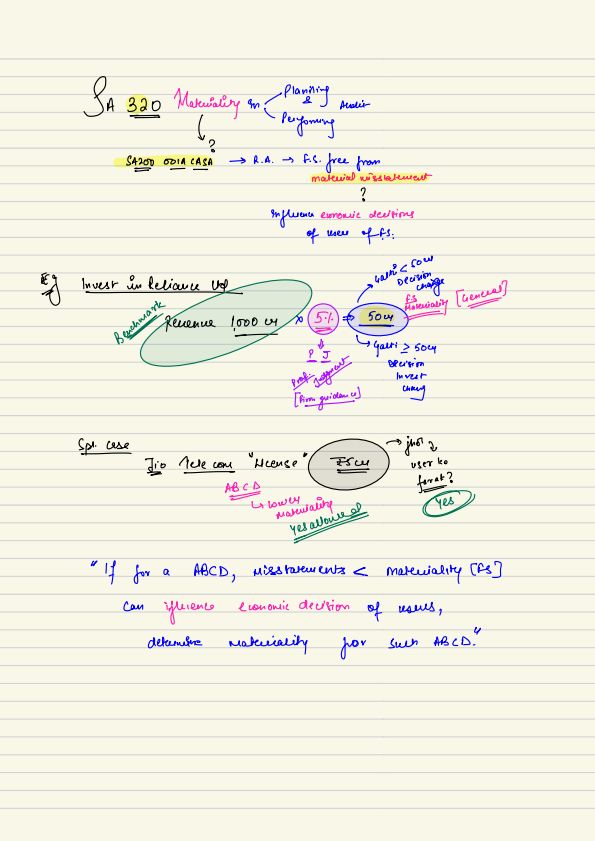 SA 320 Materiality in Planning & Performing Audit
?
SA200 OOIA CASA → R.A. → F.S. free from
material misstatement
?
Influence economic decisions
of users of F.S.
Eg Invest in Reliance Ltd
Galti < 50cr
Decision
change
FS
Materiality [General]
Benchmark
Revenue 1,000 cr × 5% ⇒ 50cr
P J
Prof. Judgment
[Firm guidance]
Galti ≥ 50cr
Decision
Invest
chang
Spl. case
Jio Telecom "License" 25cr
jhol
user ko
farak?
Yes
ABCD
↳ Lower
Materiality
Yes allowed
"If for a ABCD, Misstatements < Materiality [FS]
can ifluence economic decision of users,
determine materiality for such ABCD."